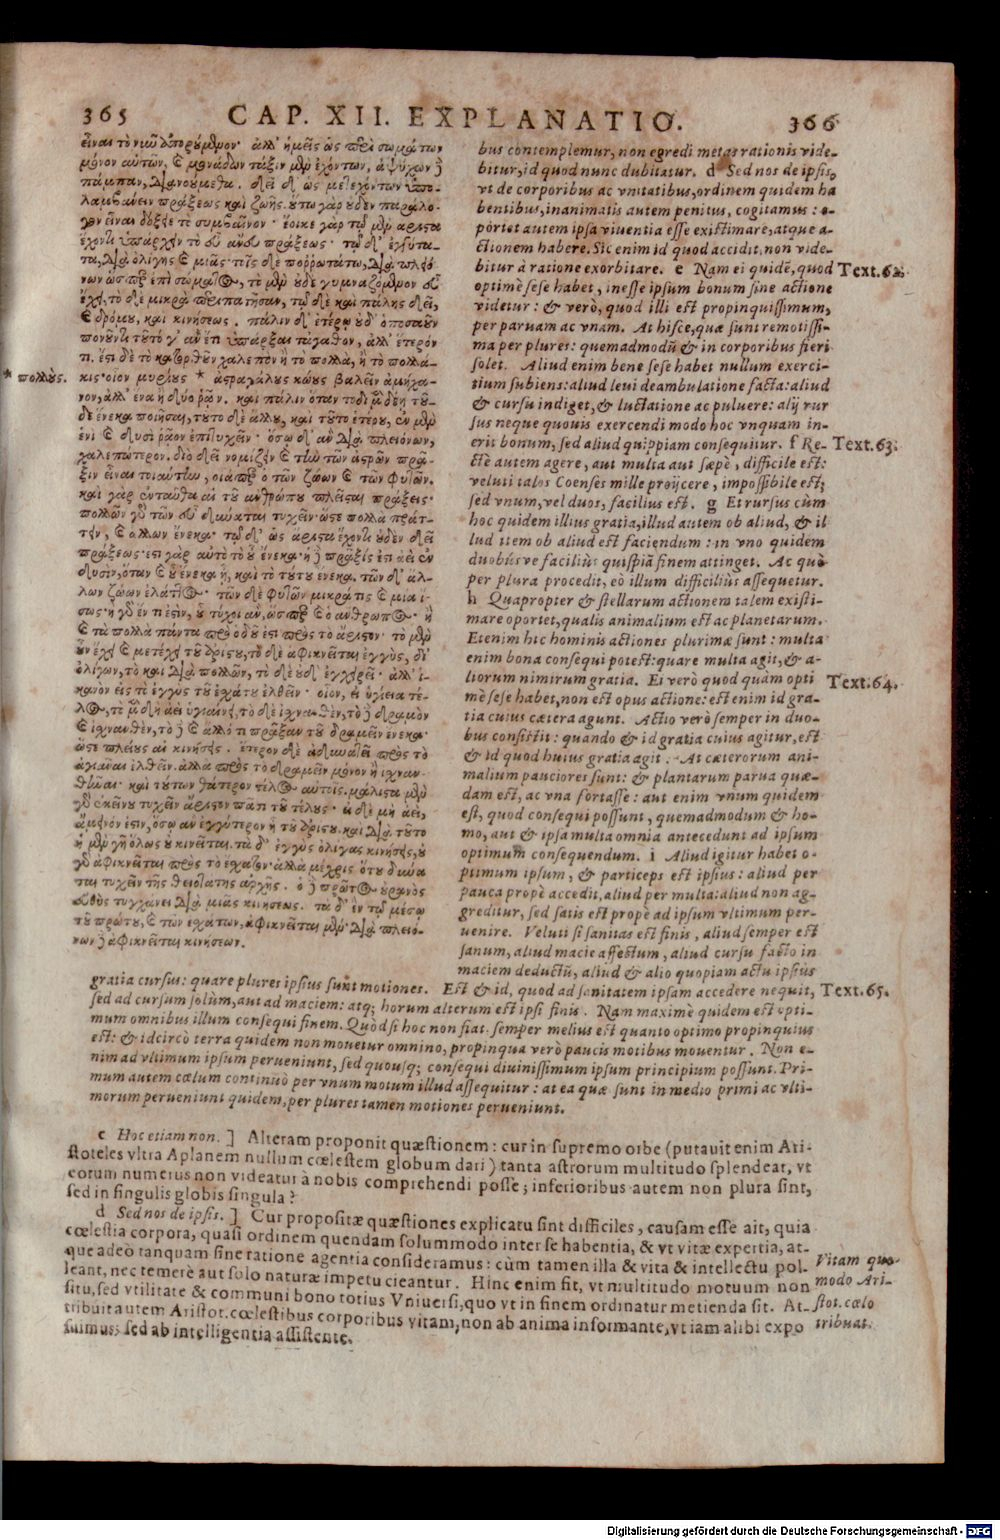 365 CAP. XII. EXPLANATIO. 366
εἶναι τὸ νῦν ἀπορούμενον· ἀλλ' ἡμεῖς ὡς περὶ σωμάτων
μόνον αὐτῶν, καὶ μονάδων τάξιν μὲν ἐχόντων, ἀψύχων δὲ
πάμπαν, διανοούμεθα. δεῖ δ' ὡς μετεχόντων ὑπο-
λαμβάνειν πράξεως καὶ ζωῆς. οὕτω γὰρ οὐδὲν παράλο-
γον εἶναι δόξειε τὸ συμβαῖνον· ἔοικε γὰρ τῷ μὲν ἄριστα
ἔχοντι ὑπάρχειν τὸ εὖ ἄνευ πράξεως· τῷ δ' ἐγγύτα-
τα, διὰ ὀλίγης καὶ μιᾶς· τοῖς δὲ πορρωτάτω, διὰ πλειό-
νων ὥσπερ ἐπὶ σώματος, τὸ μὲν οὐδὲ γυμναζόμενον εὖ
ἔχει, τὸ δὲ μικρὰ περιπατῆσαν, τῷ δὲ καὶ πάλης δεῖ,
καὶ δρόμου, καὶ κινήσεως. πάλιν δ' ἑτέρῳ οὐδ' ὁποσαοῦν
πονοῦντι τοῦτό γ' ἂν ἔτι ὑπάρξαι τἀγαθὸν, ἀλλ' ἕτερόν
τι. ἔστι δὲ τὸ κατορθοῦν χαλεπὸν ἢ τὸ πολλὰ, ἢ τὸ πολλά-
* πολλοὺς.
κις· οἷον μυρίους * ἀστραγάλους κώους βαλεῖν ἀμήχα-
νον, ἀλλ' ἕνα ἢ δύο ῥᾷον. καὶ πάλιν ὅταν τοδὶ μὲν δέῃ τοῦ-
δε ἕνεκα ποιῆσαι, τοῦτο δὲ ἄλλου, καὶ τοῦτο ἑτέρου, ἐν μὲν
ἑνὶ καὶ δυσὶ ῥᾷον ἐπιτυχεῖν· ὅσῳ δ' ἂν διὰ πλειόνων,
χαλεπώτερον. διὸ δεῖ νομίζειν καὶ τὴν τῶν ἄστρων πρᾶ-
ξιν εἶναι τοιαύτην, οἵαπερ ἡ τῶν ζῴων καὶ τῶν φυτῶν.
καὶ γὰρ ἐνταῦθα αἱ τοῦ ἀνθρώπου πλεῖσται πράξεις·
πολλῶν γὰρ τῶν εὖ δύναται τυχεῖν· ὥστε πολλὰ πράτ-
τειν, καὶ ἄλλων ἕνεκα· τῷ δ' ὡς ἄριστα ἔχοντι οὐδὲν δεῖ
πράξεως· ἔστι γὰρ αὐτὸ τὸ οὗ ἕνεκα· ἡ δὲ πρᾶξίς ἐστι ἀεὶ ἐν
δυσὶν, ὅταν καὶ οὗ ἕνεκα ᾖ, καὶ τὸ τούτου ἕνεκα. τῶν δ' ἄλ-
λων ζῴων ἐλάττους· τῶν δὲ φυτῶν μικρά τις καὶ μία ἴ-
σως· ἢ γὰρ ἕν τί ἐστιν, οὗ τύχοι ἂν, ὥσπερ καὶ ὁ ἄνθρωπος· ἢ
καὶ τὰ πολλὰ πάντα πρὸ ὁδοῦ ἐστι πρὸς τὸ ἄριστον· τὸ μὲν
οὖν ἔχει καὶ μετέχει τοῦ ἀρίστου, τὸ δὲ ἀφικνεῖται ἐγγὺς, δι'
ὀλίγων, τὸ καὶ διὰ πολλῶν, τὸ δὲ οὐδ' ἐγχειρεῖ· ἀλλ' ἱ-
κανὸν εἰς τὸ ἐγγὺς τοῦ ἐσχάτου ἐλθεῖν· οἷον, εἰ ὑγίεια τέ-
λος, τὸ μὲν δὴ ἀεὶ ὑγιαίνει, τὸ δὲ ἰσχνανθὲν, τὸ δὲ δραμὸν
καὶ ἰσχνανθὲν, τὸ δὲ καὶ ἄλλό τι πρᾶξαν τοῦ δραμεῖν ἕνεκα·
ὥστε πλείους αἱ κινήσεις. ἕτερον δὲ ἀδυνατεῖ πρὸς τὸ
ὑγιᾶναι ἐλθεῖν. ἀλλὰ πρὸς τὸ δραμεῖν μόνον ἢ ἰσχναν-
θῆναι· καὶ τούτων θάτερον τέλος αὐτοῖς. μάλιστα μὲν
γὰρ ἐκείνου τυχεῖν ἄριστον παντὶ τοῦ τέλους· εἰ δὲ μὴ ἀεὶ,
ἄμεινόν ἐστιν, ὅσῳ ἂν ἐγγύτερον ᾖ τοῦ ἀρίστου. καὶ διὰ τοῦτο
ἡ μὲν γῆ ὅλως οὐ κινεῖται. τὰ δ' ἐγγὺς ὀλίγας κινήσεις, οὐ
γὰρ ἀφικνεῖται πρὸς τὸ ἔσχατον· ἀλλὰ μέχρις ὅτου δύνα-
ται τυχεῖν τῆς θειοτάτης ἀρχῆς. ὁ δὲ πρῶτος οὐρανὸς
εὐθὺς τυγχάνει διὰ μιᾶς κινήσεως. τὰ δ' ἐν τῷ μέσῳ
τοῦ πρώτου, καὶ τῶν ἐσχάτων, ἀφικνεῖται μὲν· διὰ πλειό-
νων δὲ ἀφικνεῖται κινήσεων.
bus contemplemur, non egredi metas rationis vide-
bitur, id quod nunc dubitatur. d Sed nos de ipsis,
vt de corporibus ac vnitatibus, ordinem quidem ha
bentibus, inanimatis autem penitus, cogitamus: o-
portet autem ipsa viuentia esse existimare, atque a-
ctionem habere. Sic enim id quod accidit, non vide-
bitur à ratione exorbitare. e Nam ei quidē, quod Text.62.
optimè sese habet, inesse ipsum bonum sine actione
videtur: & verò, quod illi est propinquissimum,
per paruam ac vnam. At hisce, quæ sunt remotissi-
ma per plures: quemadmodū & in corporibus fieri
solet. Aliud enim bene sese habet nullum exerci-
tium subiens: aliud leui deambulatione facta: aliud
& cursu indiget, & luctatione ac puluere: alij rur
sus neque quouis exercendi modo hoc vnquam in-
erit bonum, sed aliud quippiam consequitur. f Re- Text.63.
ctè autem agere, aut multa aut sæpè, difficile est:
veluti talos Coenses mille proijcere, impossibile est;
sed vnum, vel duos, facilius est. g Et rursus cùm
hoc quidem illius gratia, illud autem ob aliud, & il
lud item ob aliud est faciendum: in vno quidem
duobúsve faciliùs quispiā finem attinget. Ac quò
per plura procedit, eò illum difficiliùs assequetur.
h Quapropter & stellarum actionem talem existi-
mare oportet, qualis animalium est ac planetarum.
Etenim hic hominis actiones plurimæ sunt: multa
enim bona consequi potest: quare multa agit, & a-
liorum nimirum gratia. Ei verò quod quàm opti Text.64.
mè sese habet, non est opus actione: est enim id gra-
tia cuius cætera agunt. Actio verò semper in duo-
bus consistit: quando & id gratia cuius agitur, est
& id quod huius gratia agit. At cæterorum ani-
malium pauciores sunt: & plantarum parua quæ-
dam est, ac vna fortasse: aut enim vnum quidem
est, quod consequi possunt, quemadmodum & ho-
mo, aut & ipsa multa omnia antecedunt ad ipsum
optimum consequendum. i Aliud igitur habet o-
ptimum ipsum, & particeps est ipsius: aliud per
pauca propè accedit, aliud per multa: aliud non ag-
greditur, sed satis est propè ad ipsum vltimum per-
uenire. Veluti si sanitas est finis, aliud semper est
sanum, aliud macie affectum, aliud cursu facto in
maciem deductū, aliud & alio quopiam actu ipsius
gratia cursus: quare plures ipsius sunt motiones. Est & id, quod ad sanitatem ipsam accedere nequit, Text.65.
sed ad cursum solùm, aut ad maciem: atq; horum alterum est ipsi finis. Nam maximè quidem est opti-
mum omnibus illum consequi finem. Quòd si hoc non fiat semper melius est quanto optimo propinquius
est: & idcircò terra quidem non mouetur omnino, propinqua verò paucis motibus mouentur. Non e-
nim ad vltimum ipsum perueniunt, sed quousq; consequi diuinissimum ipsum principium possunt. Pri-
mum autem cœlum continuò per vnum motum illud assequitur: at ea quæ sunt in medio primi ac vlti-
morum perueniunt quidem, per plures tamen motiones perueniunt.
c Hoc etiam non.] Alteram proponit quæstionem: cur in supremo orbe (putauit enim Ari-
stoteles vltra Aplanem nullum cœlestem globum dari) tanta astrorum multitudo splendeat, vt
eorum numerus non videatur à nobis comprehendi posse; inferioribus autem non plura sint,
sed in singulis globis singula?
d Sed nos de ipsis.] Cur propositæ quæstiones explicatu sint difficiles, causam esse ait, quia
cœlestia corpora, quasi ordinem quendam solummodo inter se habentia, & vt vitæ expertia, at-
que adeò tanquam sine ratione agentia consideramus: cùm tamen illa & vita & intellectu pol-
leant, nec temerè aut solo naturæ impetu cieantur. Hinc enim fit, vt multitudo motuum non
situ, sed vtilitate & communi bono totius Vniuersi, quo vt in finem ordinatur metienda sit. At-
tribuit autem Aristot. cœlestibus corporibus vitam, non ab anima informante, vt iam alibi expo
suimus; sed ab intelligentia assistente.
Vitam quo
modo Ari-
stot. cœlo
tribuat.
Digitalisierung gefördert durch die Deutsche Forschungsgemeinschaft - DFG